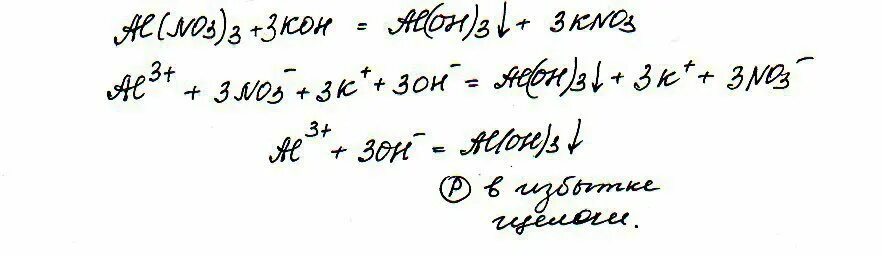 Al(NO3)3+3KOH = Al(OH)3↓ + 3KNO3
Al³⁺ + 3NO3⁻ + 3K⁺ + 3OH⁻ = Al(OH)3↓ + 3K⁺ + 3NO3⁻
Al³⁺ + 3OH⁻ = Al(OH)3↓
Ⓟ в избытке
щелочи.